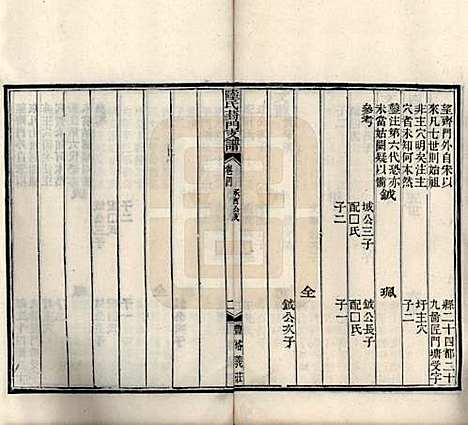 望齊門外自朱以
來凡七世則始祖
非主穴明矣注主
穴者未知何本然
鏊注第六代恐亦
未當姑闕疑以備
參考
縣二十四都二十
九啚匠門塘受字
圩主穴
子二
珮
鉞公長子
配囗氏
子一
鉞
城公三子
配囗氏
子二
全
鉞公次子
陸氏葑門支譜
卷四
二
豐裕義莊